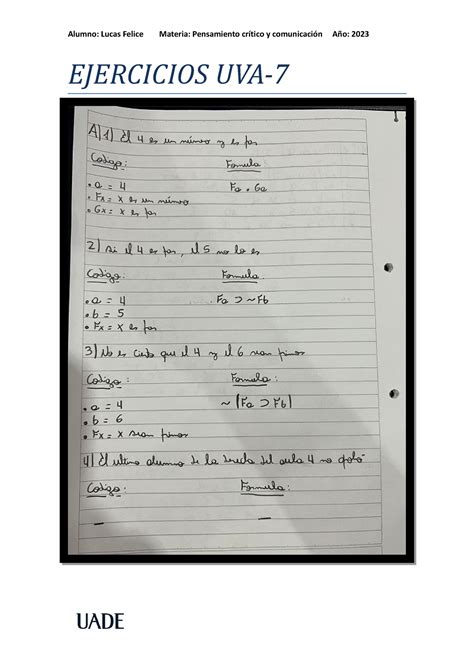 Alumno: Lucas Felice Materia: Pensamiento crítico y comunicación Año: 2023
EJERCICIOS UVA-7
A) 1) El 4 es un número y es par
Codigo: Formula
• a = 4 Fa . Ga
• Fx = x es un número
• Gx = x es par
2) Si el 4 es par, el 5 no lo es
Codigo: Formula:
• a = 4 Fa ⊃ ~Fb
• b = 5
• Fx = x es par
3) No es cierto que el 4 y el 6 sean primos
Codigo: Formula:
• a = 4 ~ (Fa ⊃ Fb)
• b = 6
• Fx = x sean primos
4) El ultimo alumno de la del aula 4 no
Codigo: Formula:
— —
UADE